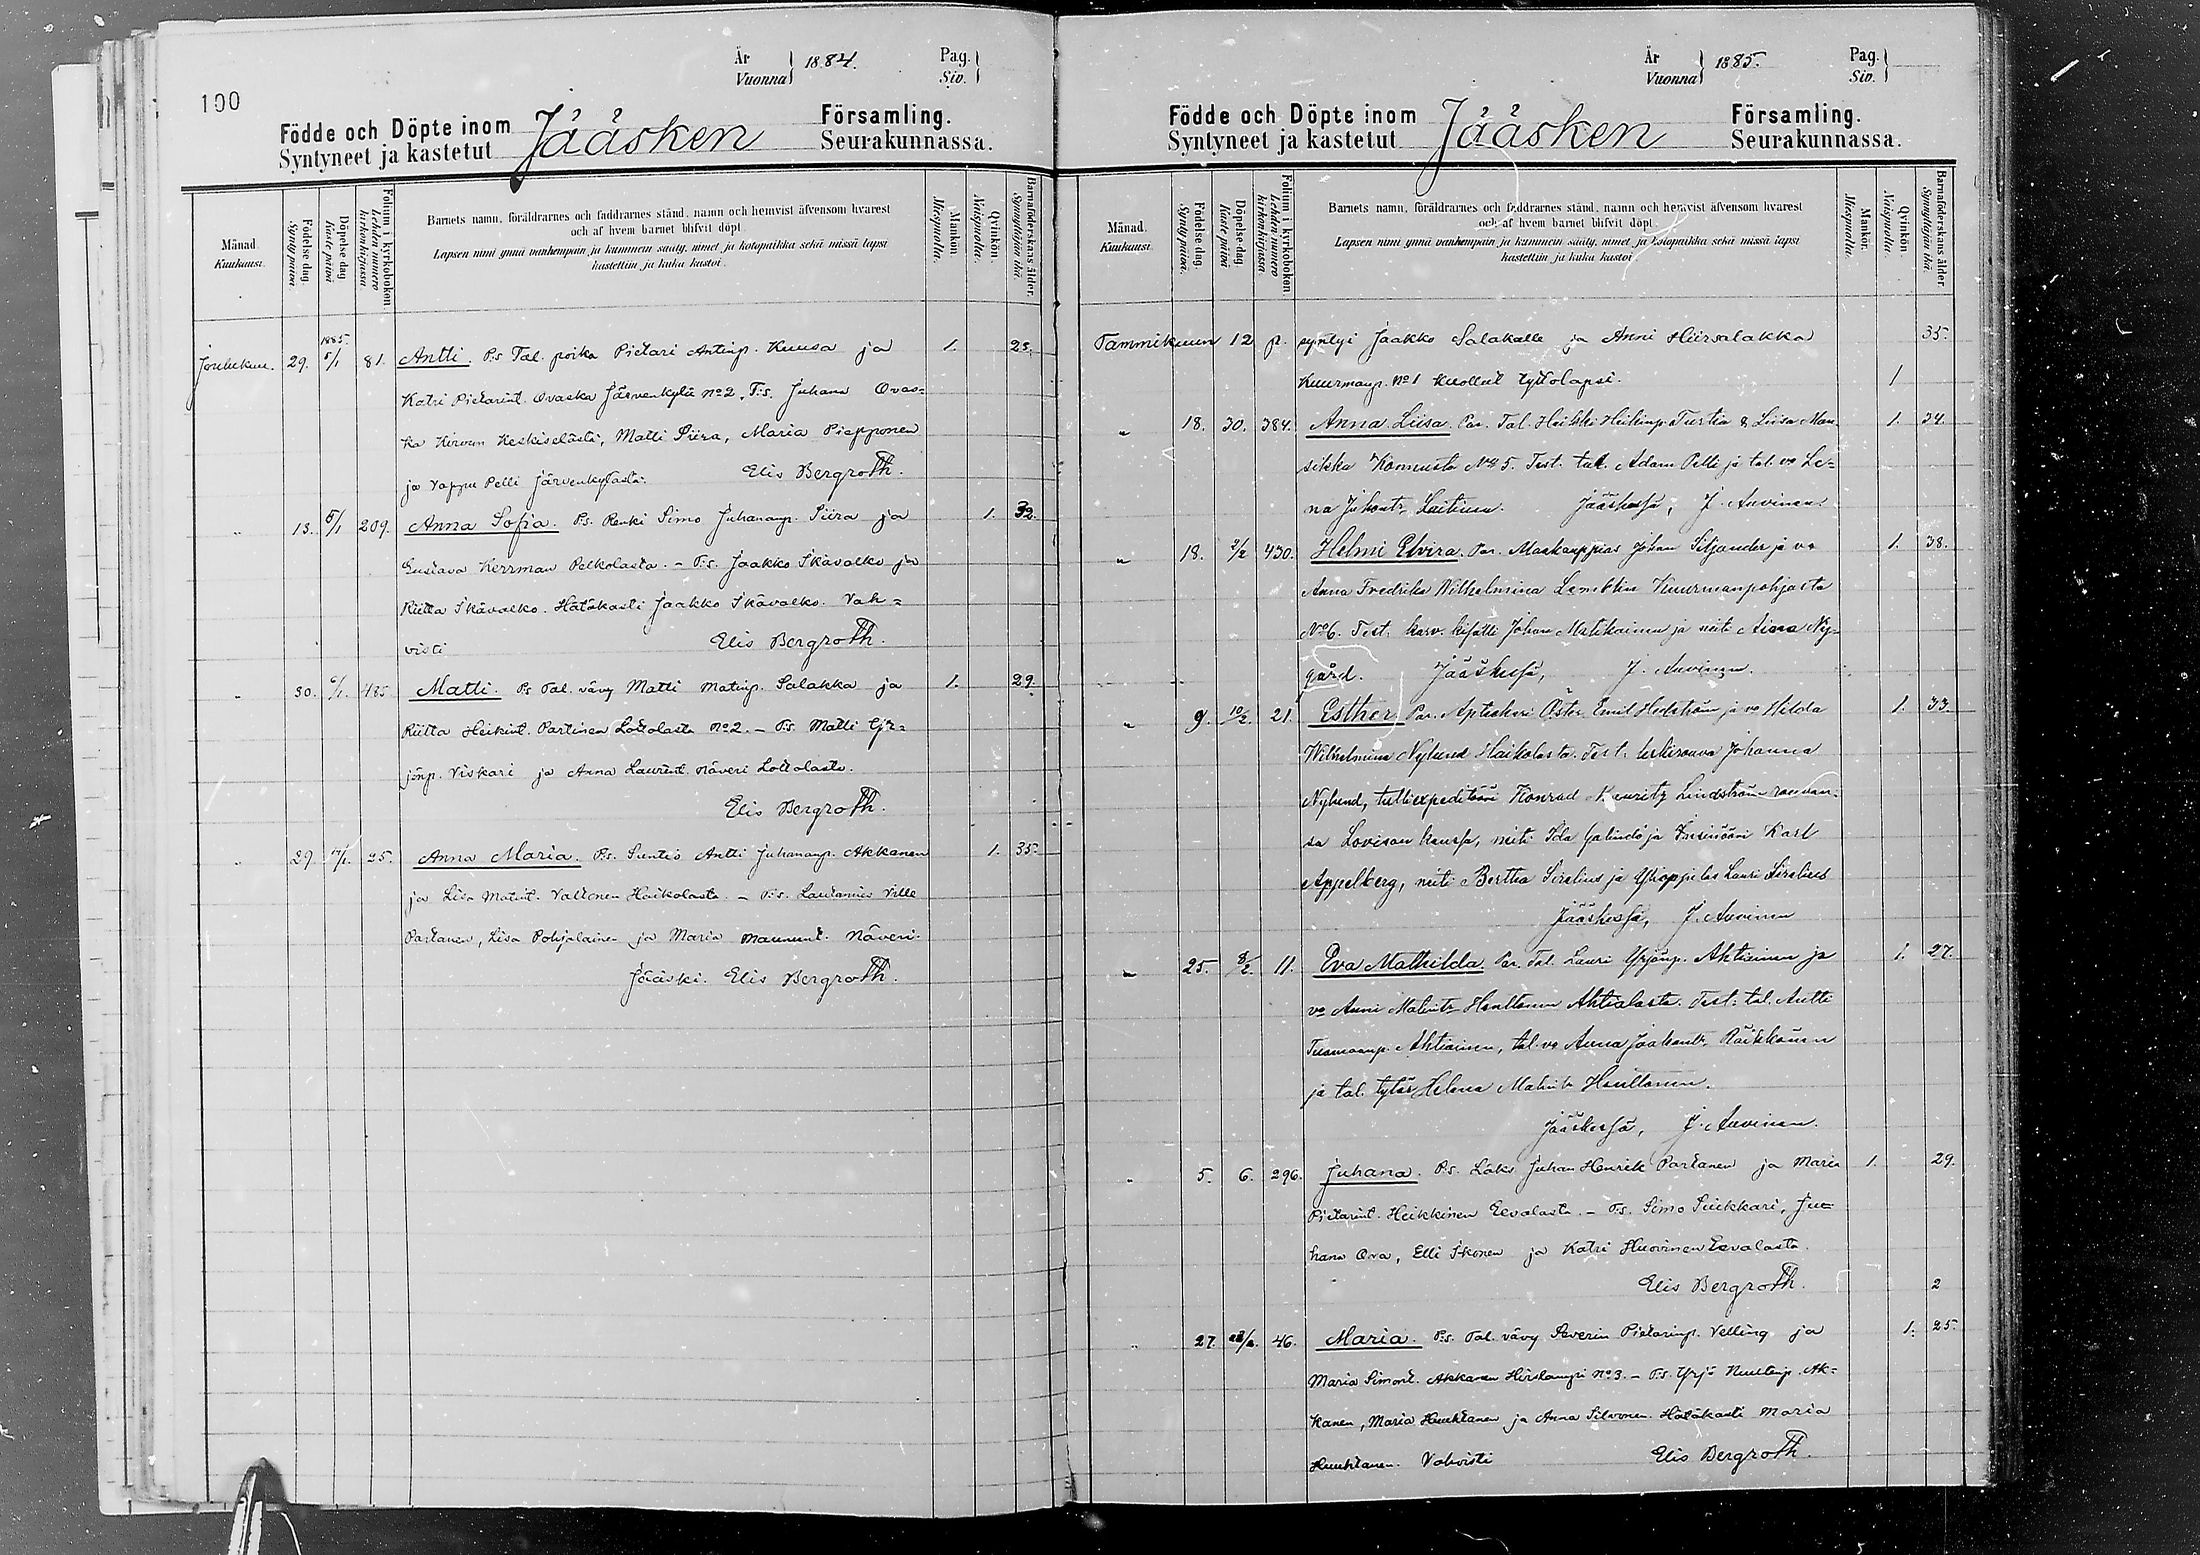 100
År Vuonna } 1884. Pag. Siv. }
Födde och Döpte inom Jääsken Församling.
Syntyneet ja kastetut Seurakunnassa.
Månad. Kuukausi.
Födelse dag. Syntypäivä.
Döpelse dag. Kaste päivä
Folium i kyrkoboken. Lehden numero kirkonkirjassa.
Barnets namn, föräldrarnes och faddrarnes stånd, namn och hemvist äfvensom hvarest
och af hvem barnet blifvit döpt.
Lapsen nimi ynnä vanhempain ja kummein sääty, nimet ja kotopaikka sekä missä lapsi
kastettiin ja kuka kastoi.
Mankön. Miespuolia.
Qvinkön. Naispuolia.
Barnaföderskans ålder. Synnyttäjän ikä.
1885.
Joulukuu. 29. 5/1 81. Antti. P:s Tal. poika Pietari Antinp. Kuusa ja 1. 23.
Katri Pietarint. Ovaska Järvenkylä No 2. T:s. Juhana Ovas-
ka Kirvun Keskiselästä, Matti Siira, Maria Piepponen
ja Vappu Pelli Järvenkylästä. Elis Bergroth.
" 13. 5/1 209. Anna Sofia. P:s. Renki Simo Juhananp. Siira ja 1. 32.
Gustava Herrman Pelkolasta. – T:s. Jaakko Ikävalko ja
Riitta Ikävalko. Hätäkasti Jaakko Ikävalko. Vah=
visti Elis Bergroth.
" 30. 6/1. 485 Matti. P:s Tal. vävy Matti Matinp. Salakka ja 1. 29.
Riitta Heikint. Partinen Lottolasta No 2. – T:s. Matti Yr=
jönp. Viskari ja Anna Laurint. Näveri Lottolasta.
Elis Bergroth.
" 29. 25. Anna Maria. P:s. Suntio Antti Juhananp. Akkanen 1. 35.
ja Lisa Matint. Valtonen Haikolasta. – T:s. Lautamies Ville
Partanen, Lisa Pohjalainen ja Maria Maununt. Näveri.
Jääski. Elis Bergroth.
År Vuonna } 1885. Pag. Siv. }
Födde och Döpte inom Jääsken Församling.
Syntyneet ja kastetut Seurakunnassa.
Månad. Kuukausi.
Födelse dag. Syntypäivä.
Döpelse dag. Kaste päivä
Folium i kyrkoboken. Lehden numero kirkonkirjassa.
Barnets namn, föräldrarnes och faddrarnes stånd, namn och hemvist äfvensom hvarest
och af hvem barnet blifvit döpt.
Lapsen nimi ynnä vanhempain ja kummein sääty, nimet ja kotopaikka sekä missä lapsi
kastettiin ja kuka kastoi.
Mankön. Miespuolia.
Qvinkön. Naispuolia.
Barnaföderskans ålder. Synnyttäjän ikä.
Tammikuun 12 p. syntyi Jaakko Salakalle ja Anni Hiirsalakka 35.
Kuurmanp. No 1 kuollut tyttölapsi. 1
" 18. 30. 384. Anna Liisa. Par. Tal. Heikki Heikinp. Tiustia & Liisa Man- 1. 34.
sikka Konnusta No 5. Test. tal. Adam Pelli ja tal. vo Le=
na Juhont. Laitinen. Jääskessä, J. Auvinen.
" 18. 2/2 430. Helmi Elvira. Par. Maakauppias Johan Siljander ja vo 1. 38.
Anna Fredrika Wilhelmina Kuurmanpohjasta
No 6. Test. karv. kisälli Johan Matikainen ja neiti Aina Ny-
gård. Jääskessä, J. Auvinen.
" 9. 10/2. 21. Esther. Par. Aptekari Öster Emil Hedström ja vo Hilda 1. 33.
Wilhelmina Nylund Haikolasta. Test. leskirouva Johanna
Nylund, tulliexpeditööri Konrad Mauritz Lindström rouvan-
sa Lovisan kanssa, neiti Ida Galindo ja Insinööri Karl
Appelberg, neiti Bertha Sirelius ja Ylioppilas Lauri Sirelius
Jääskessä, J. Auvinen
" 25. 8/2. 11. Eva Mathilda. Par. Tal. Lauri Yrjönp. Ahtiainen ja 1. 27.
vo Anni Matintr Honttonen Ahtialasta. Test. tal. Antti
Tuomaanp. Ahtiainen, tal. vo Anna Jaakontr. Räikkönen
ja tal. tytär Helena Matintr Honttonen.
Jääskessä, J. Auvinen.
" 5. 6. 296. Juhana. P:s. Johan Henrik Partanen ja Maria 1. 29.
Pietarint. Heikkinen Eevalasta. – T:s. Simo Suikkari, Ju=
hana Ora, Elli Ikonen ja Katri Huovinen Eevalasta.
Elis Bergroth. 2
" 27. 46. Maria. P:s. Tal. vävy Severin Pietarinp. Velling ja 1. 25.
Maria Simont. Akkanen Hirslampi No 3. – T:s. Yrjö Nuutinp. Ak=
kanen, Maria Huuhtanen ja Anna Silvonen. Hätäkasti Maria
Huuhtanen. Vahvisti Elis Bergroth.